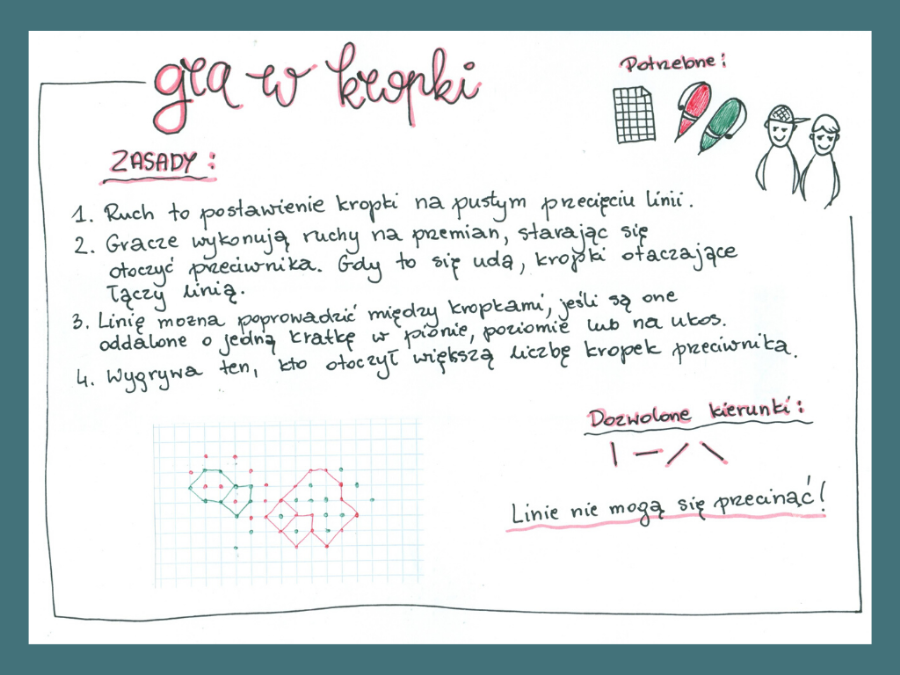 gra w kropki
Potrzebne:
ZASADY:
1. Ruch to postawienie kropki na pustym przecięciu linii.
2. Gracze wykonują ruchy na przemian, starając się
otoczyć przeciwnika. Gdy to się uda, kropki otaczające
łączy linią.
3. Linię można poprowadzić między kropkami, jeśli są one
oddalone o jedną kratkę w pionie, poziomie lub na ukos.
4. Wygrywa ten, kto otoczył większą liczbę kropek przeciwnika.
Dozwolone kierunki:
Linie nie mogą się przecinać!